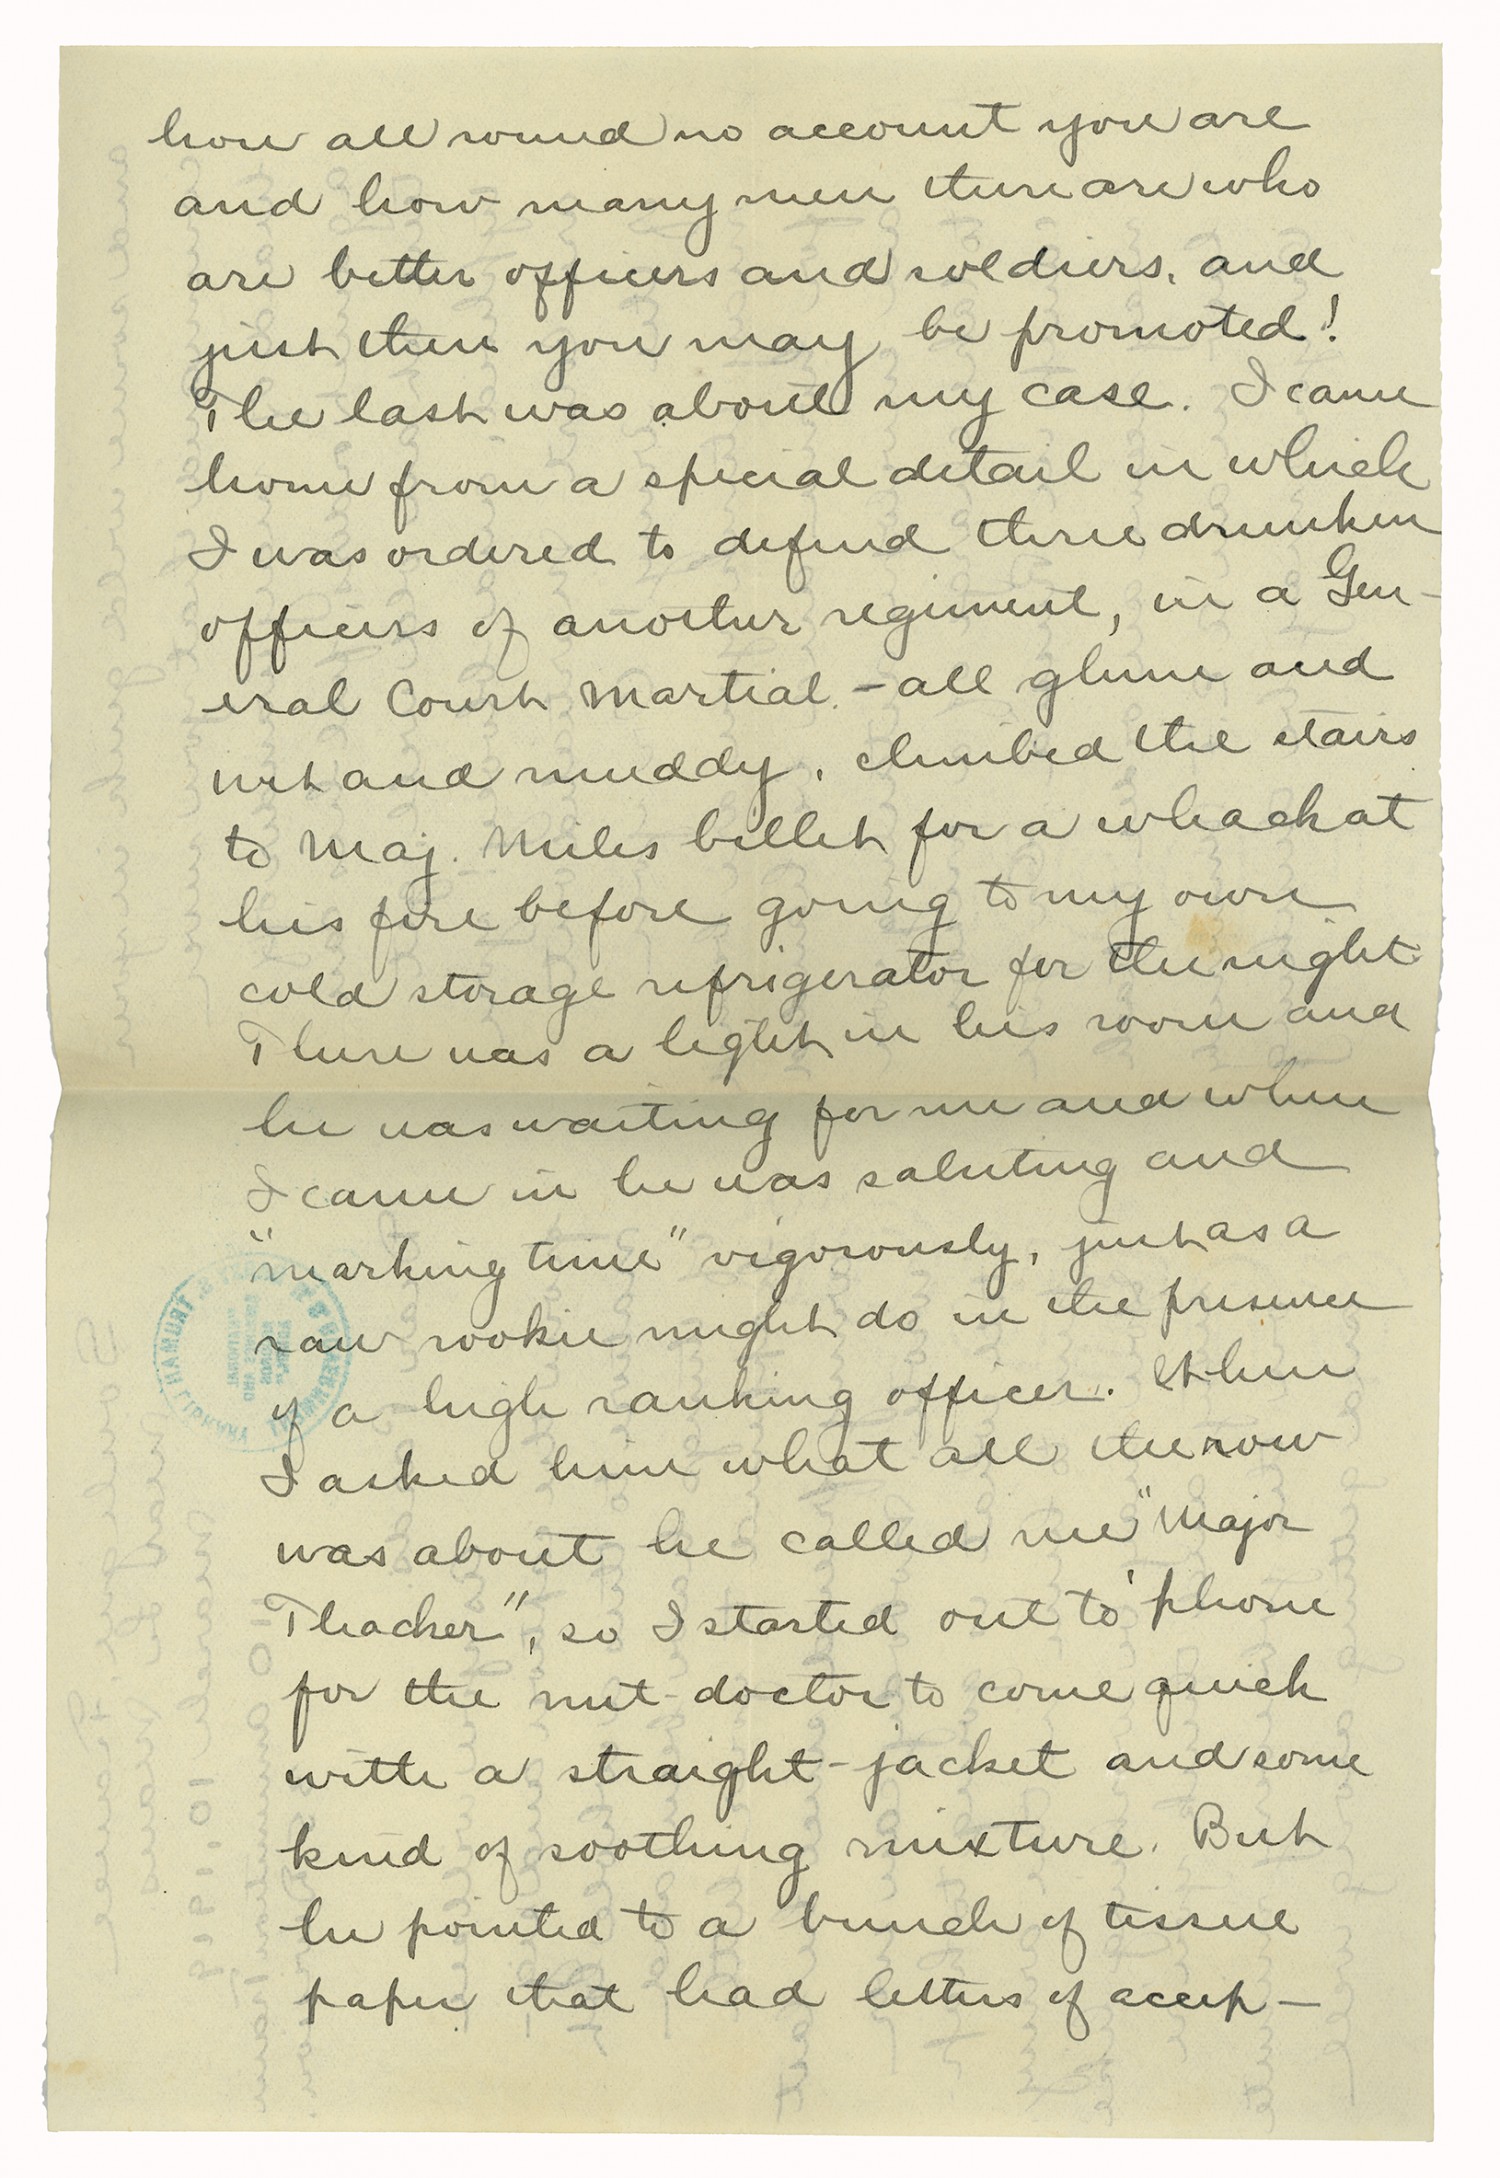 how all round no account you are
and how many men there are who
are better officers and soldiers, and
just then you may be promoted!
The last was about my case. I came
home from a special detail in which
I was ordered to defend three drunken
officers of another regiment, in a Gen-
eral Court Martial - all glum and
wet and muddy, climbed the stairs
to Maj. Miles billet for a whack at
his fire before going to my own
cold storage refrigerator for the night.
There was a light in his room and
he was waiting for me and when
I came in he was saluting and
"marking time" vigorously, just as a
raw rookie might do in the presence
of a high ranking officer. When
I asked him what all the row
was about he called me "Major
Thacher", so I started out to 'phone
for the nut-doctor to come quick
with a straight-jacket and some
kind of soothing mixture. But
he pointed to a bunch of tissue
paper that had letters of accep-